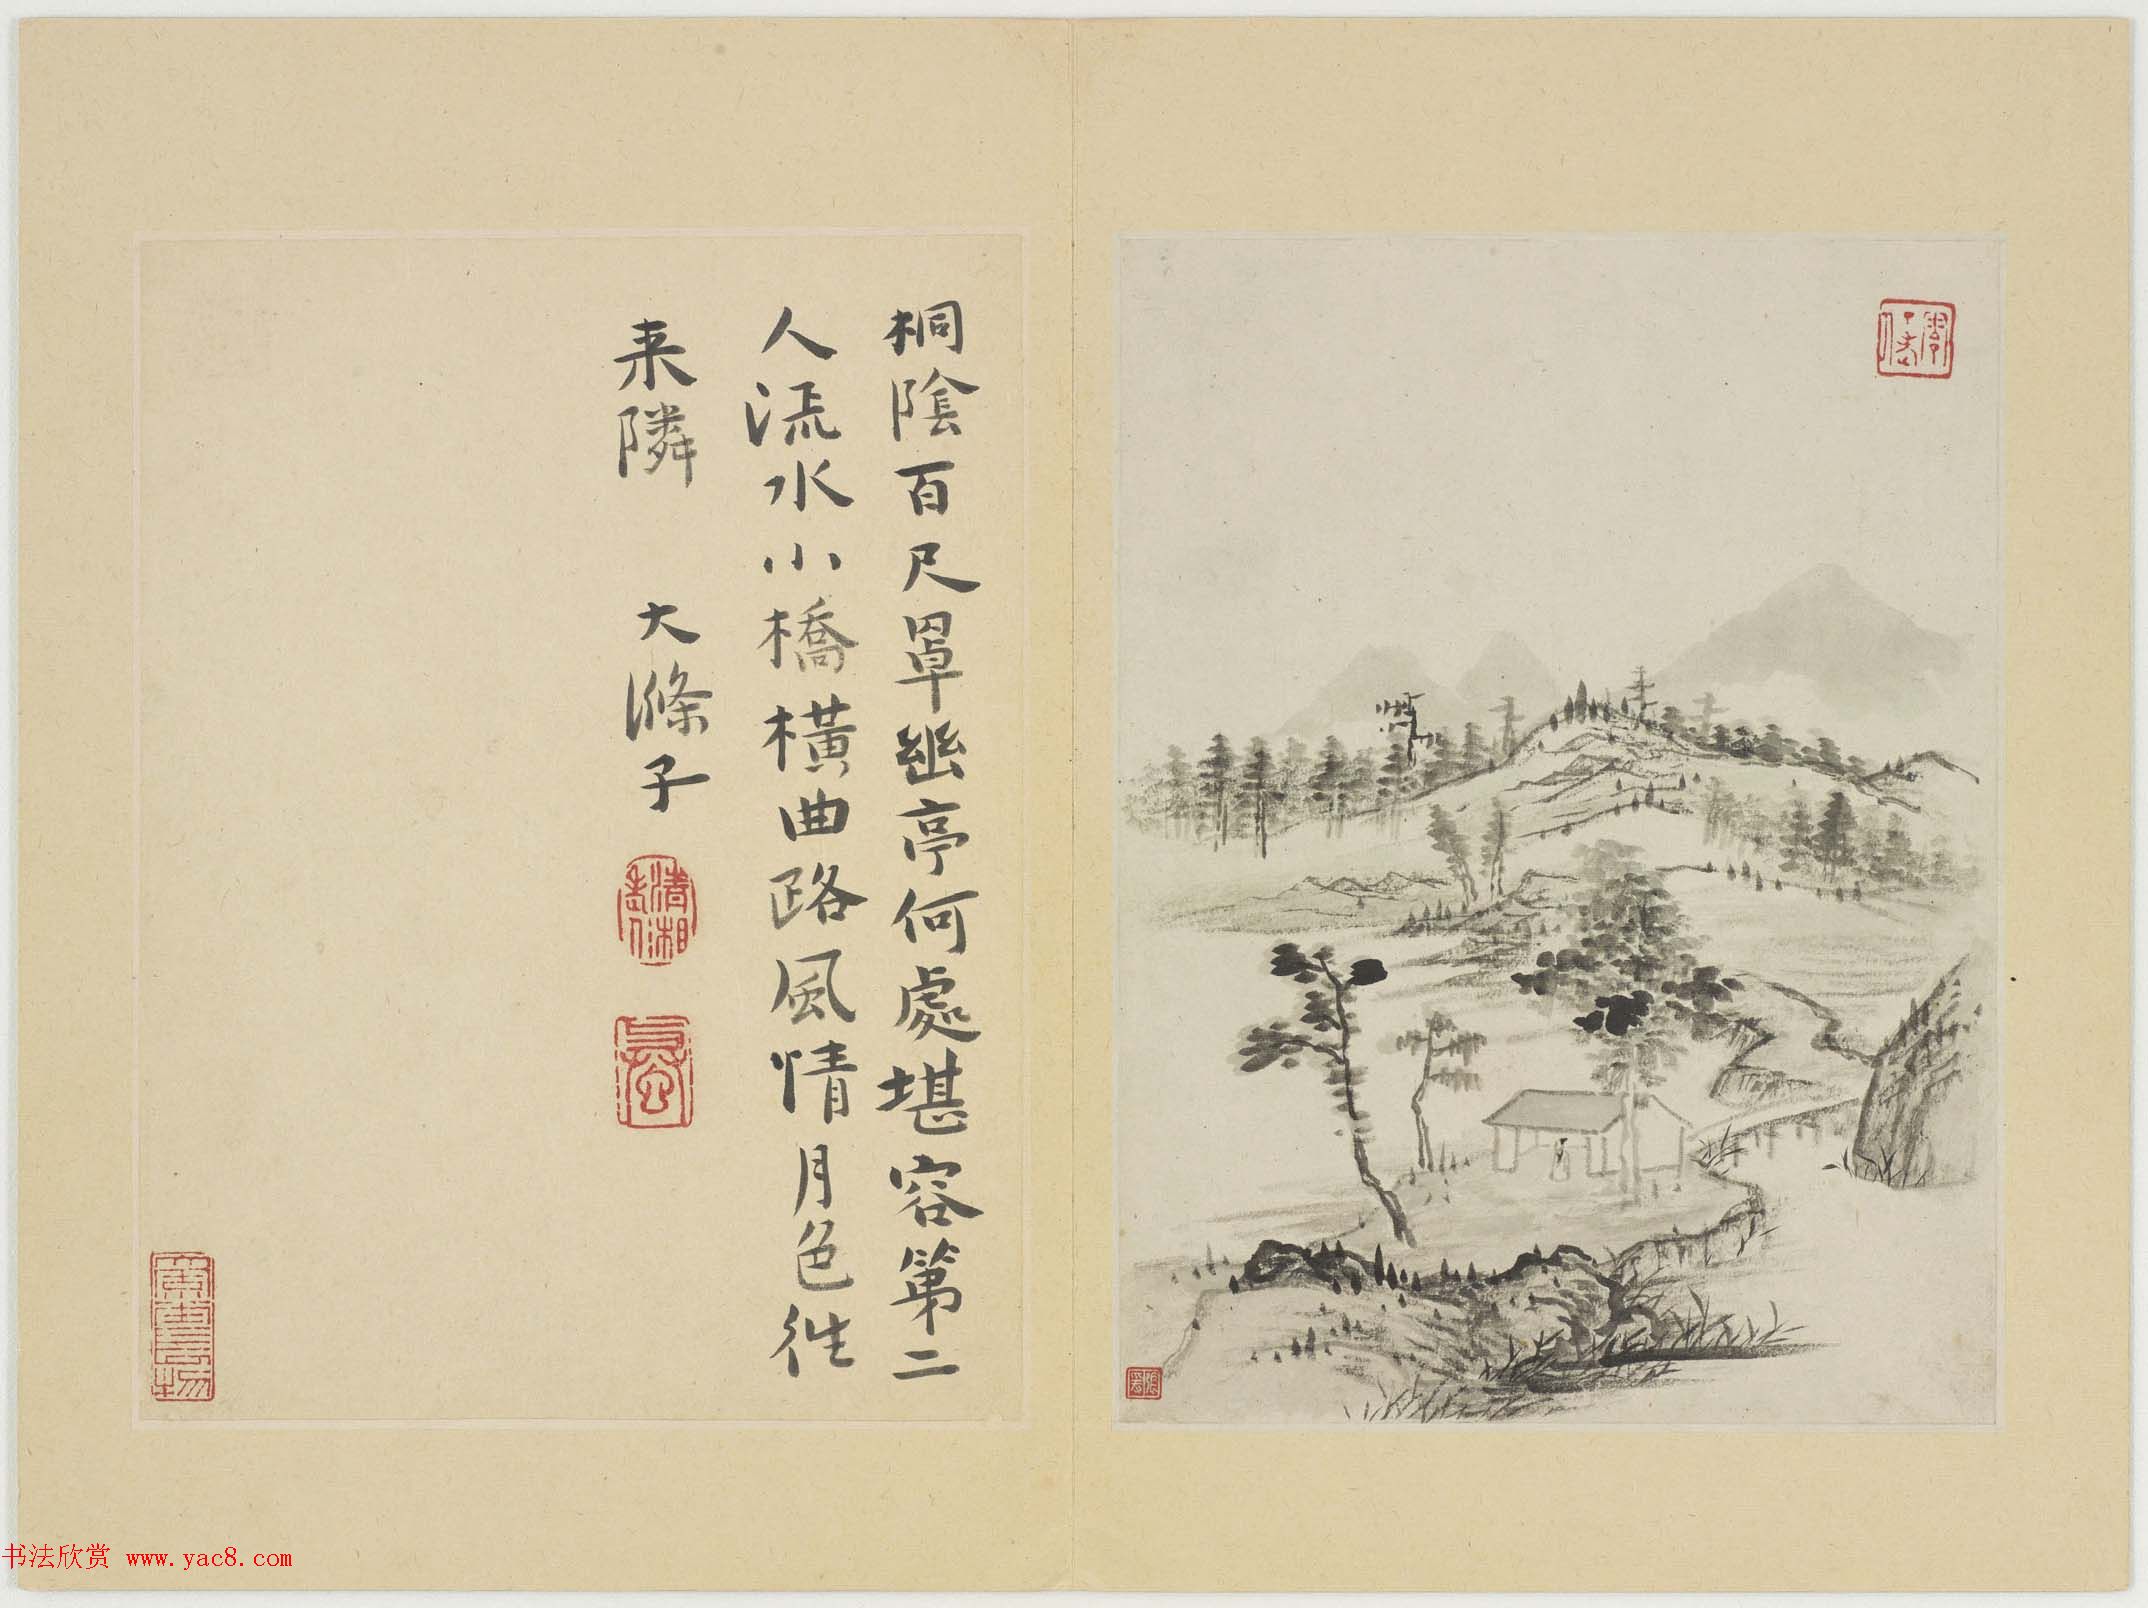 桐陰百尺罩幽亭何處堪容第二
人流水小橋橫曲路風情月色往
来隣 大滌子
清湘老人
書法欣赏 www.yac8.com